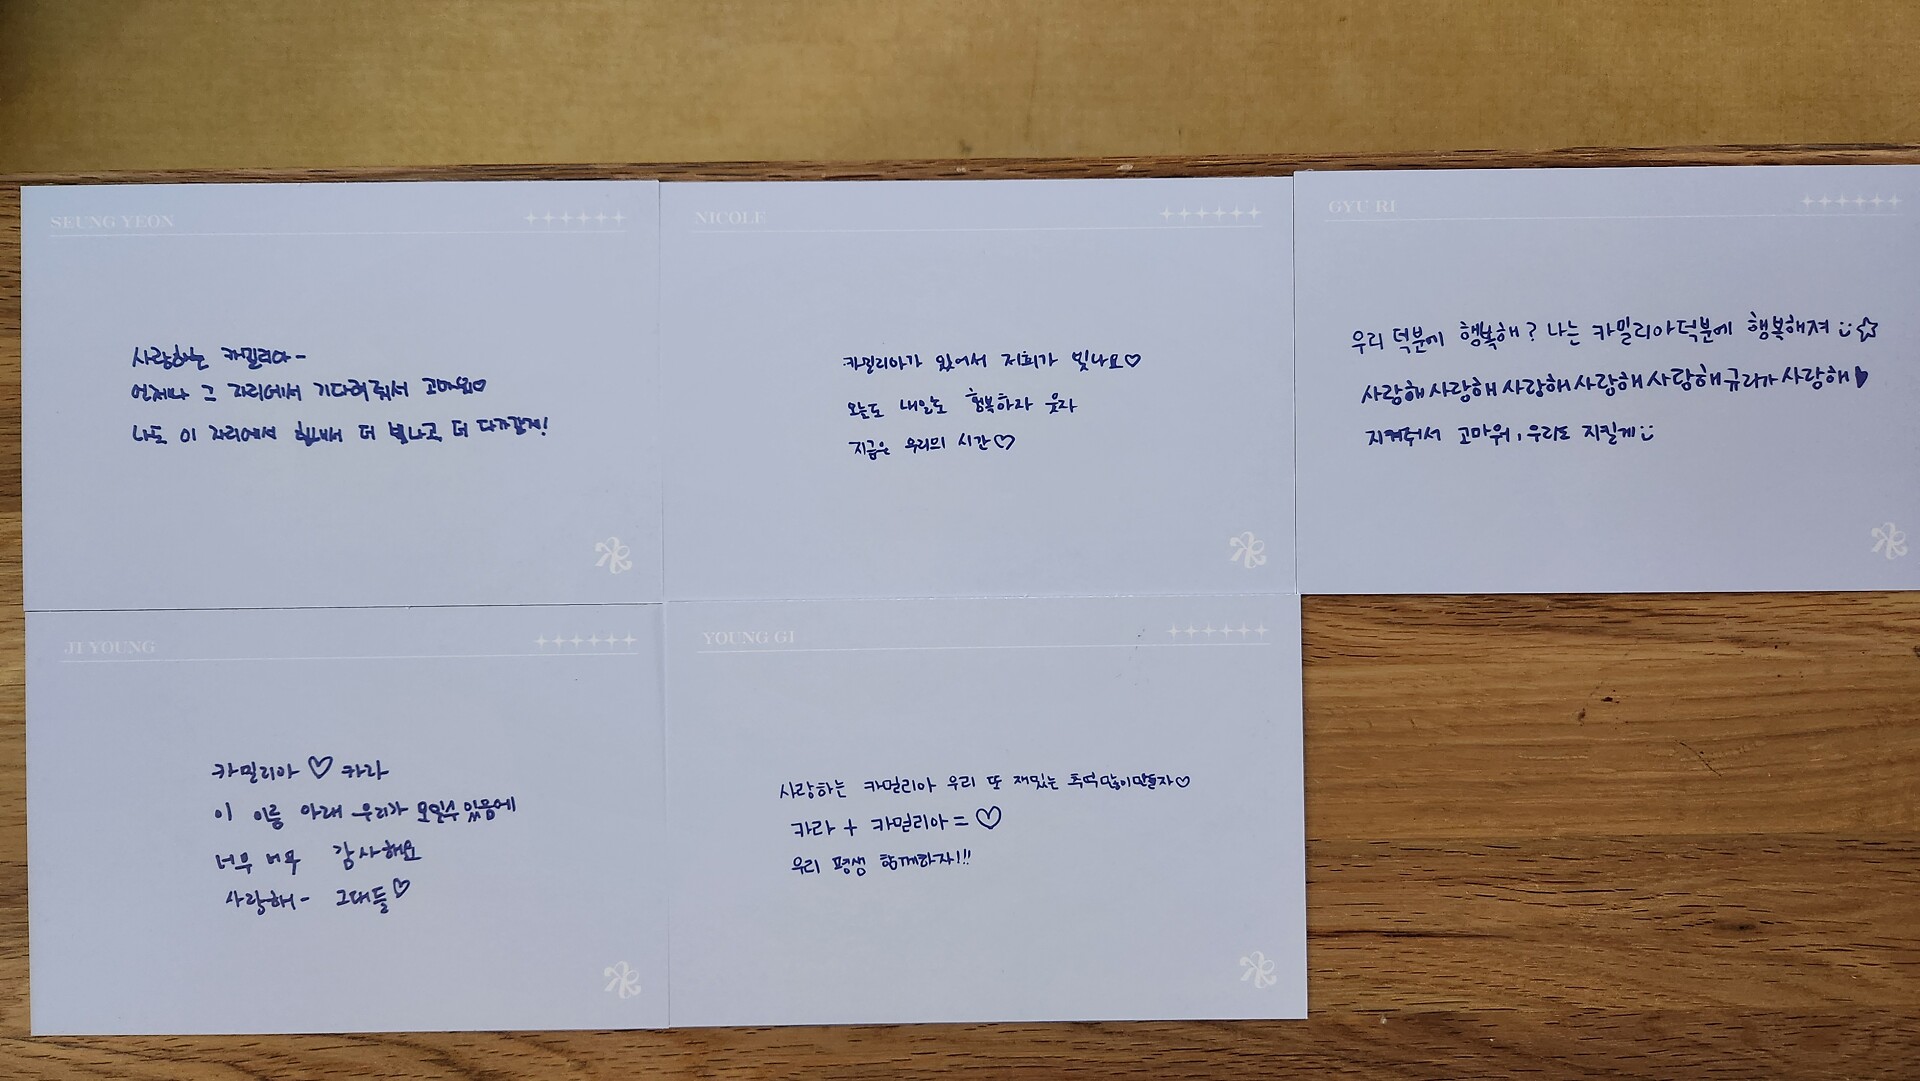 SEUNG YEON
사랑하는 카밀리아-
언제나 그 자리에서 기다려줘서 고마워요♡
나도 이 자리에서 힘내서 더 빛나고 더 다가갈게!
NICOLE
카밀리아가 있어서 저희가 빛나요♡
오늘도 내일도 행복하자 웃자
지금은 우리의 시간♡
GYU RI
우리 덕분에 행복해? 나는 카밀리아덕분에 행복해져 ☺☆
사랑해사랑해사랑해사랑해사랑해규리가사랑해♥
지켜줘서 고마워, 우리도 지킬게☺
JI YOUNG
카밀리아 ♡ 카라
이 이름 아래 우리가 모일수있음에
너무 너무 감사해요
사랑해- 그대들♡
YOUNG GI
사랑하는 카밀리아 우리 또 재밌는 추억많이만들자♡
카라 + 카밀리아 = ♡
우리 평생 함께하자!!!